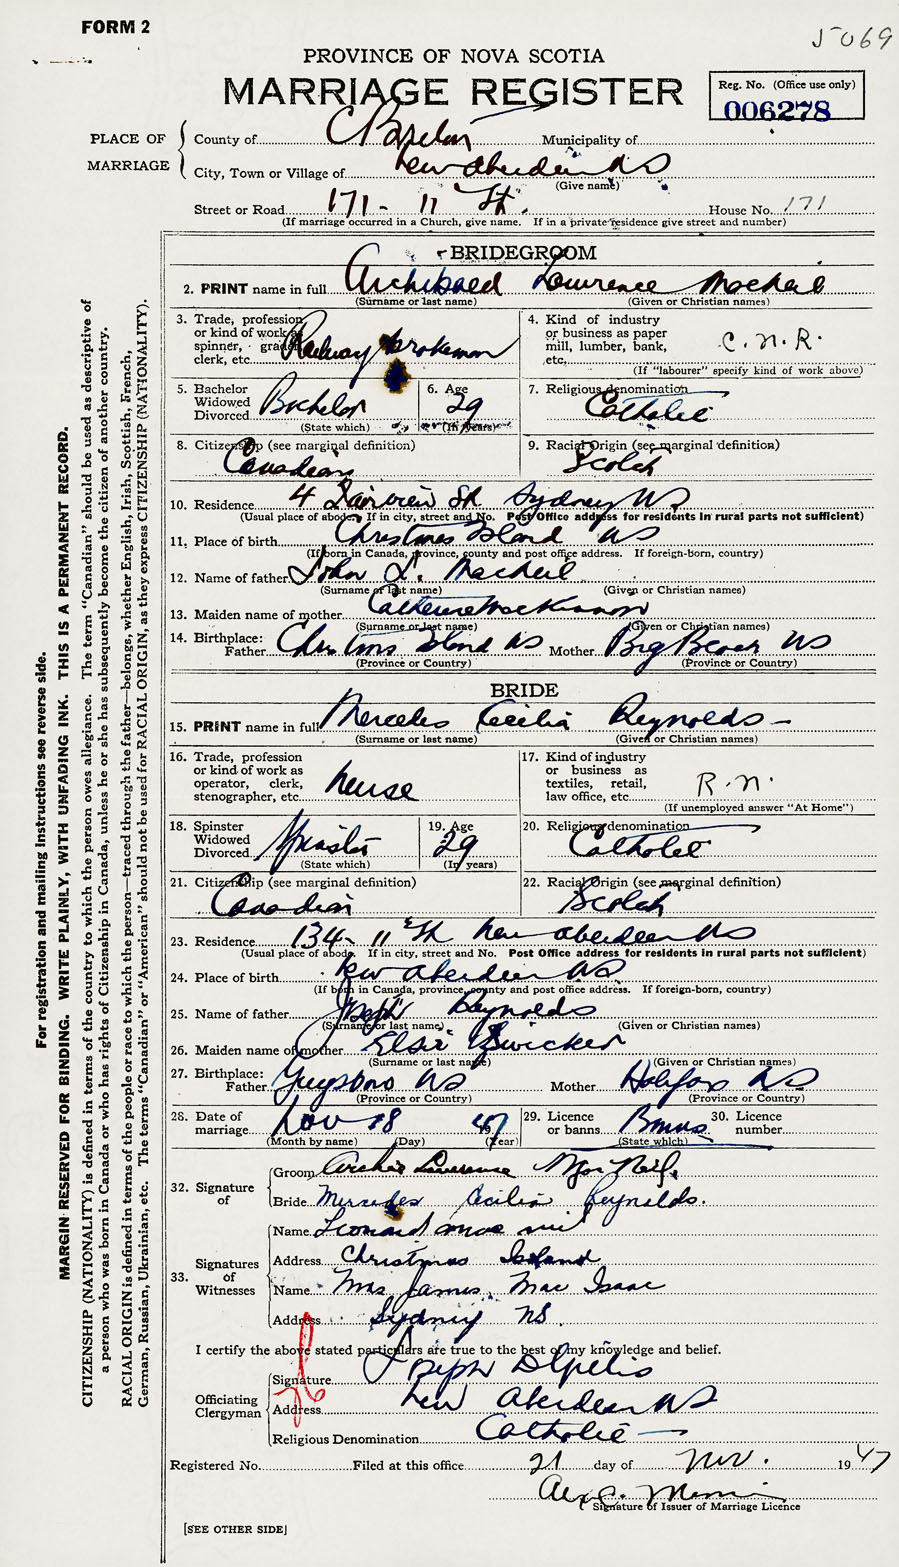 FORM 2
5069
PROVINCE OF NOVA SCOTIA
MARRIAGE REGISTER
Reg. No. (Office use only)
006278
PLACE OF MARRIAGE
County of C Breton Municipality of
City, Town or Village of New Aberdeen NS
(Give name)
Street or Road 171 - 11th St. House No. 171
(If marriage occurred in a Church, give name. If in a private residence give street and number)
BRIDEGROOM
2. PRINT name in full Archibald Lawrence MacNeil
(Surname or last name) (Given or Christian names)
3. Trade, profession or kind of work as spinner, grader, clerk, etc. Railway Brakeman
4. Kind of industry or business as paper mill, lumber, bank, etc. C.N.R.
(If "labourer" specify kind of work above)
5. Bachelor Widowed Divorced Bachelor
(State which)
6. Age 29
(In years)
7. Religious denomination Catholic
8. Citizenship (see marginal definition) Canadian
9. Racial Origin (see marginal definition) Scotch
10. Residence 4 Fairview St Sydney NS
(Usual place of abode. If in city, street and No. Post Office address for residents in rural parts not sufficient)
11. Place of birth Christmas Island NS
(If born in Canada, province, county and post office address. If foreign-born, country)
12. Name of father John L. MacNeil
(Surname or last name) (Given or Christian names)
13. Maiden name of mother Catherine MacKinnon
(Surname or last name) (Given or Christian names)
14. Birthplace: Father Christmas Island NS Mother Big Beach NS
(Province or Country) (Province or Country)
BRIDE
15. PRINT name in full Mercedes Cecilia Reynolds
(Surname or last name) (Given or Christian names)
16. Trade, profession or kind of work as operator, clerk, stenographer, etc. Nurse
17. Kind of industry or business as textiles, retail, law office, etc. R.N.
(If unemployed answer "At Home")
18. Spinster Widowed Divorced Spinster
(State which)
19. Age 29
(In years)
20. Religious denomination Catholic
21. Citizenship (see marginal definition) Canadian
22. Racial Origin (see marginal definition) Scotch
23. Residence 134 - 11th St New Aberdeen NS
(Usual place of abode. If in city, street and No. Post Office address for residents in rural parts not sufficient)
24. Place of birth New Aberdeen NS
(If born in Canada, province, county and post office address. If foreign-born, country)
25. Name of father Joseph Reynolds
(Surname or last name) (Given or Christian names)
26. Maiden name of mother Elsie Zwicker
(Surname or last name) (Given or Christian names)
27. Birthplace: Father Guysboro NS Mother Halifax NS
(Province or Country) (Province or Country)
28. Date of marriage Nov 18 1947
(Month by name) (Day) (Year)
29. Licence or banns Banns
(State which)
30. Licence number
32. Signature of
Groom Archie Lawrence MacNeil
Bride Mercedes Cecilia Reynolds.
33. Signatures of Witnesses
Name Leonard MacNeil
Address Christmas Island
Name Mrs James Mac Isaac
Address Sydney NS.
I certify the above stated particulars are true to the best of my knowledge and belief.
Officiating Clergyman
Signature Joseph
Address New Aberdeen NS
Religious Denomination Catholic
Registered No. Filed at this office 21 day of Nov. 1947
Signature of Issuer of Marriage Licence
[SEE OTHER SIDE]
For registration and mailing instructions see reverse side.
MARGIN RESERVED FOR BINDING. WRITE PLAINLY, WITH UNFADING INK. THIS IS A PERMANENT RECORD.
CITIZENSHIP (NATIONALITY) is defined in terms of the country to which the person owes allegiance. The term "Canadian" should be used as descriptive of
a person who was born in Canada or who has rights of Citizenship in Canada, unless he or she has subsequently become the citizen of another country.
RACIAL ORIGIN is defined in terms of the people or race to which the person—traced through the father—belongs, whether English, Irish, Scottish, French,
German, Russian, Ukrainian, etc. The terms "Canadian" or "American" should not be used for RACIAL ORIGIN, as they express CITIZENSHIP (NATIONALITY).